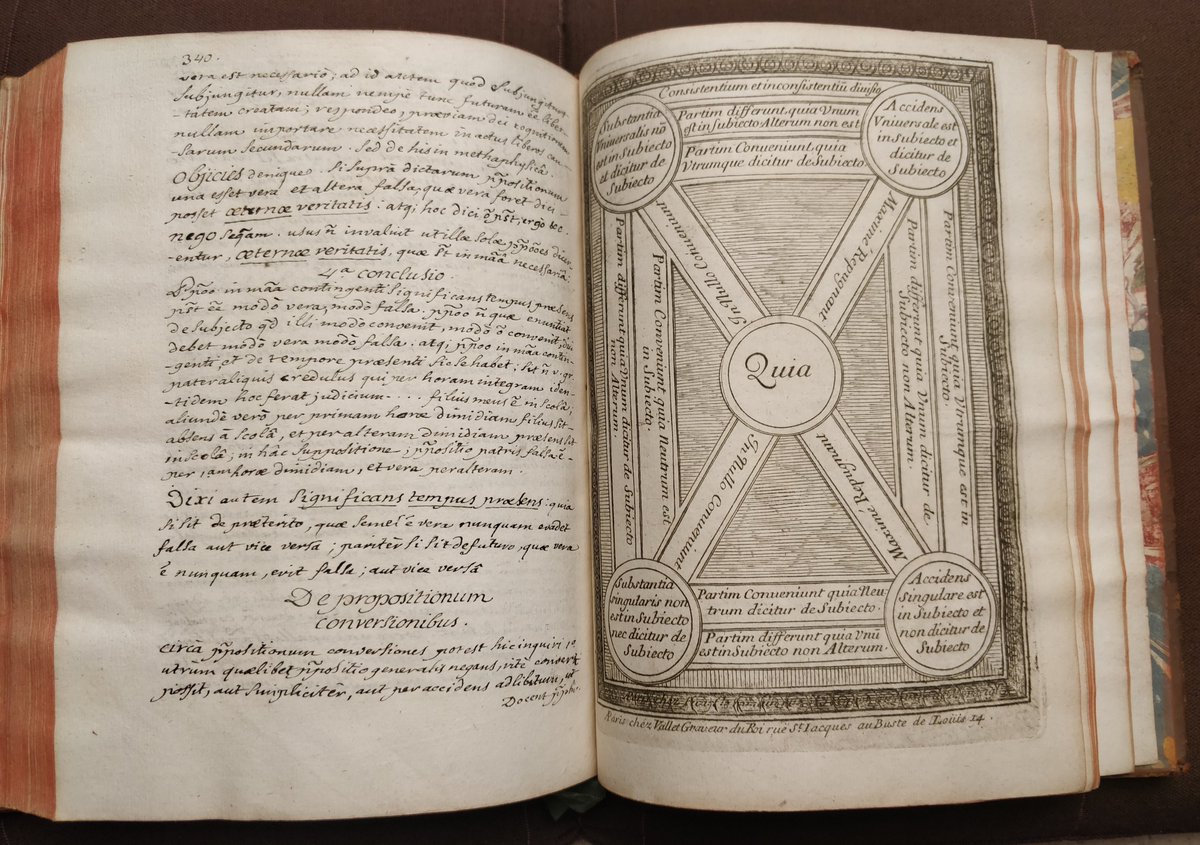 340.
vera est necessariò; ad id autem quod subjungitur,
subjungitur, nullam nempè tunc futuram eē liber-
-tatem creatam; respondeo, præviam dei cognitionem
nullam importare necessitatem in actus liberos cau-
-sarum secundarum. Sed de his in methaphysicâ.
Objicies denique. Si supra dictarum ppositionum
una esset vera et altera falsa, quæ vera foret dici
posset æternæ veritatis: atq; hoc dici
nego seqam. usus invaluit ut illæ solæ
entur, æternæ veritatis, quæ in mãa necessariâ.
4.ª conclusio.
in mãa contingenti significans tempus præsens
modò vera, modò falsa.
de subjecto qd illi modò convenit, modò
debet modò vera modò falsa: atq; in mãa contin-
-genti, et de tempore præsenti sic se habet; sit v. gr.
pater aliquis credulus qui per horam integram iden-
tidem hoc ferat judicium . . . . filius meus ē in scolâ;
aliundè verò per primam horæ dimidiam filius sit
absens à scolâ, et per alteram dimidiam præsens sit
in scolâ; in hâc suppositione; ppositio patris falsa ē
per 1am horæ dimidiam, et vera per alteram.
Dixi autem significans tempus præsens: quia
si sit de præterito, quæ semel ē vera nunquam evadet
falsa aut vice versâ; pariter si sit de futuro, quæ vera
ē nunquam, erit falsa; aut vice versâ
De propositionum
conversionibus.
circà ppositionum conversiones potest hic inquiri 1º
utrùm quælibet ppositio generalis negans, ritè converti
possit, aut simpliciter, aut per accidens ad libitum, ut
Docent
Consistentium et inconsistentiũ divisio
Substantia
Vniuersalis nõ
est in Subiecto
et dicitur de
Subiecto
Partim differunt, quia Vnum
est in Subiecto Alterum non est
Partim Conveniunt, quia
Vtrumque dicitur de Subiecto
Accidens
Vniuersale est
in Subiecto et
dicitur de
Subiecto
In Nullo Conveniunt
Maximè Repugnant
Partim differunt quia Vnum dicitur de Subiecto
non Alterum.
Partim Conveniunt quia Neutrum est
in Subiecto.
Quia
Partim differunt quia Vnum dicitur de
Subiecto non Alterum.
Partim Conveniunt quia Vtrumque est in
Subiecto.
In Nullo Conveniunt
Maximè Repugnant
Substantia
singularis non
est in Subiecto
nec dicitur de
Subiecto
Partim Conveniunt quia Neu-
trum dicitur de Subiecto.
Partim differunt quia Vnũ
est in Subiecto non Alterum.
Accidens
Singulare est
in Subiecto et
non dicitur de
Subiecto
Paris chez Vallet Graveur du Roi ruë St. Iacques au Buste de Louis 14.